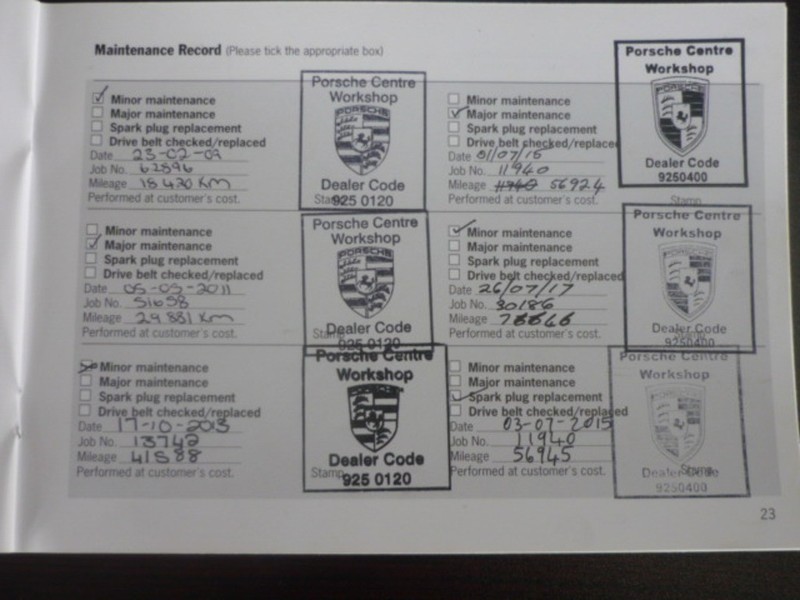 Maintenance Record (Please tick the appropriate box)
Minor maintenance
Major maintenance
Spark plug replacement
Drive belt checked/replaced
Date 23-02-09
Job No. 62896
Mileage 18 420 Km
Performed at customer's cost.
Stamp
Porsche Centre
Workshop
PORSCHE
Dealer Code
925 0120
Minor maintenance
Major maintenance
Spark plug replacement
Drive belt checked/replaced
Date 05-05-2011
Job No. 51658
Mileage 29 881 Km
Performed at customer's cost.
Stamp
Porsche Centre
Workshop
PORSCHE
Dealer Code
925 0120
Minor maintenance
Major maintenance
Spark plug replacement
Drive belt checked/replaced
Date 17-10-2013
Job No. 13742
Mileage 41588
Performed at customer's cost.
Stamp
Porsche Centre
Workshop
PORSCHE
Dealer Code
925 0120
Minor maintenance
Major maintenance
Spark plug replacement
Drive belt checked/replaced
Date 01/07/15
Job No. 11940
Mileage 11940 56924
Performed at customer's cost.
Stamp
Porsche Centre
Workshop
PORSCHE
Dealer Code
9250400
Minor maintenance
Major maintenance
Spark plug replacement
Drive belt checked/replaced
Date 26/07/17
Job No. 30186
Mileage
Performed at customer's cost.
Stamp
Porsche Centre
Workshop
PORSCHE
Dealer Code
9250400
Minor maintenance
Major maintenance
Spark plug replacement
Drive belt checked/replaced
Date 03-07-2015
Job No. 11940
Mileage 56945
Performed at customer's cost.
Stamp
Porsche Centre
Workshop
Dealer Code
9250400
23